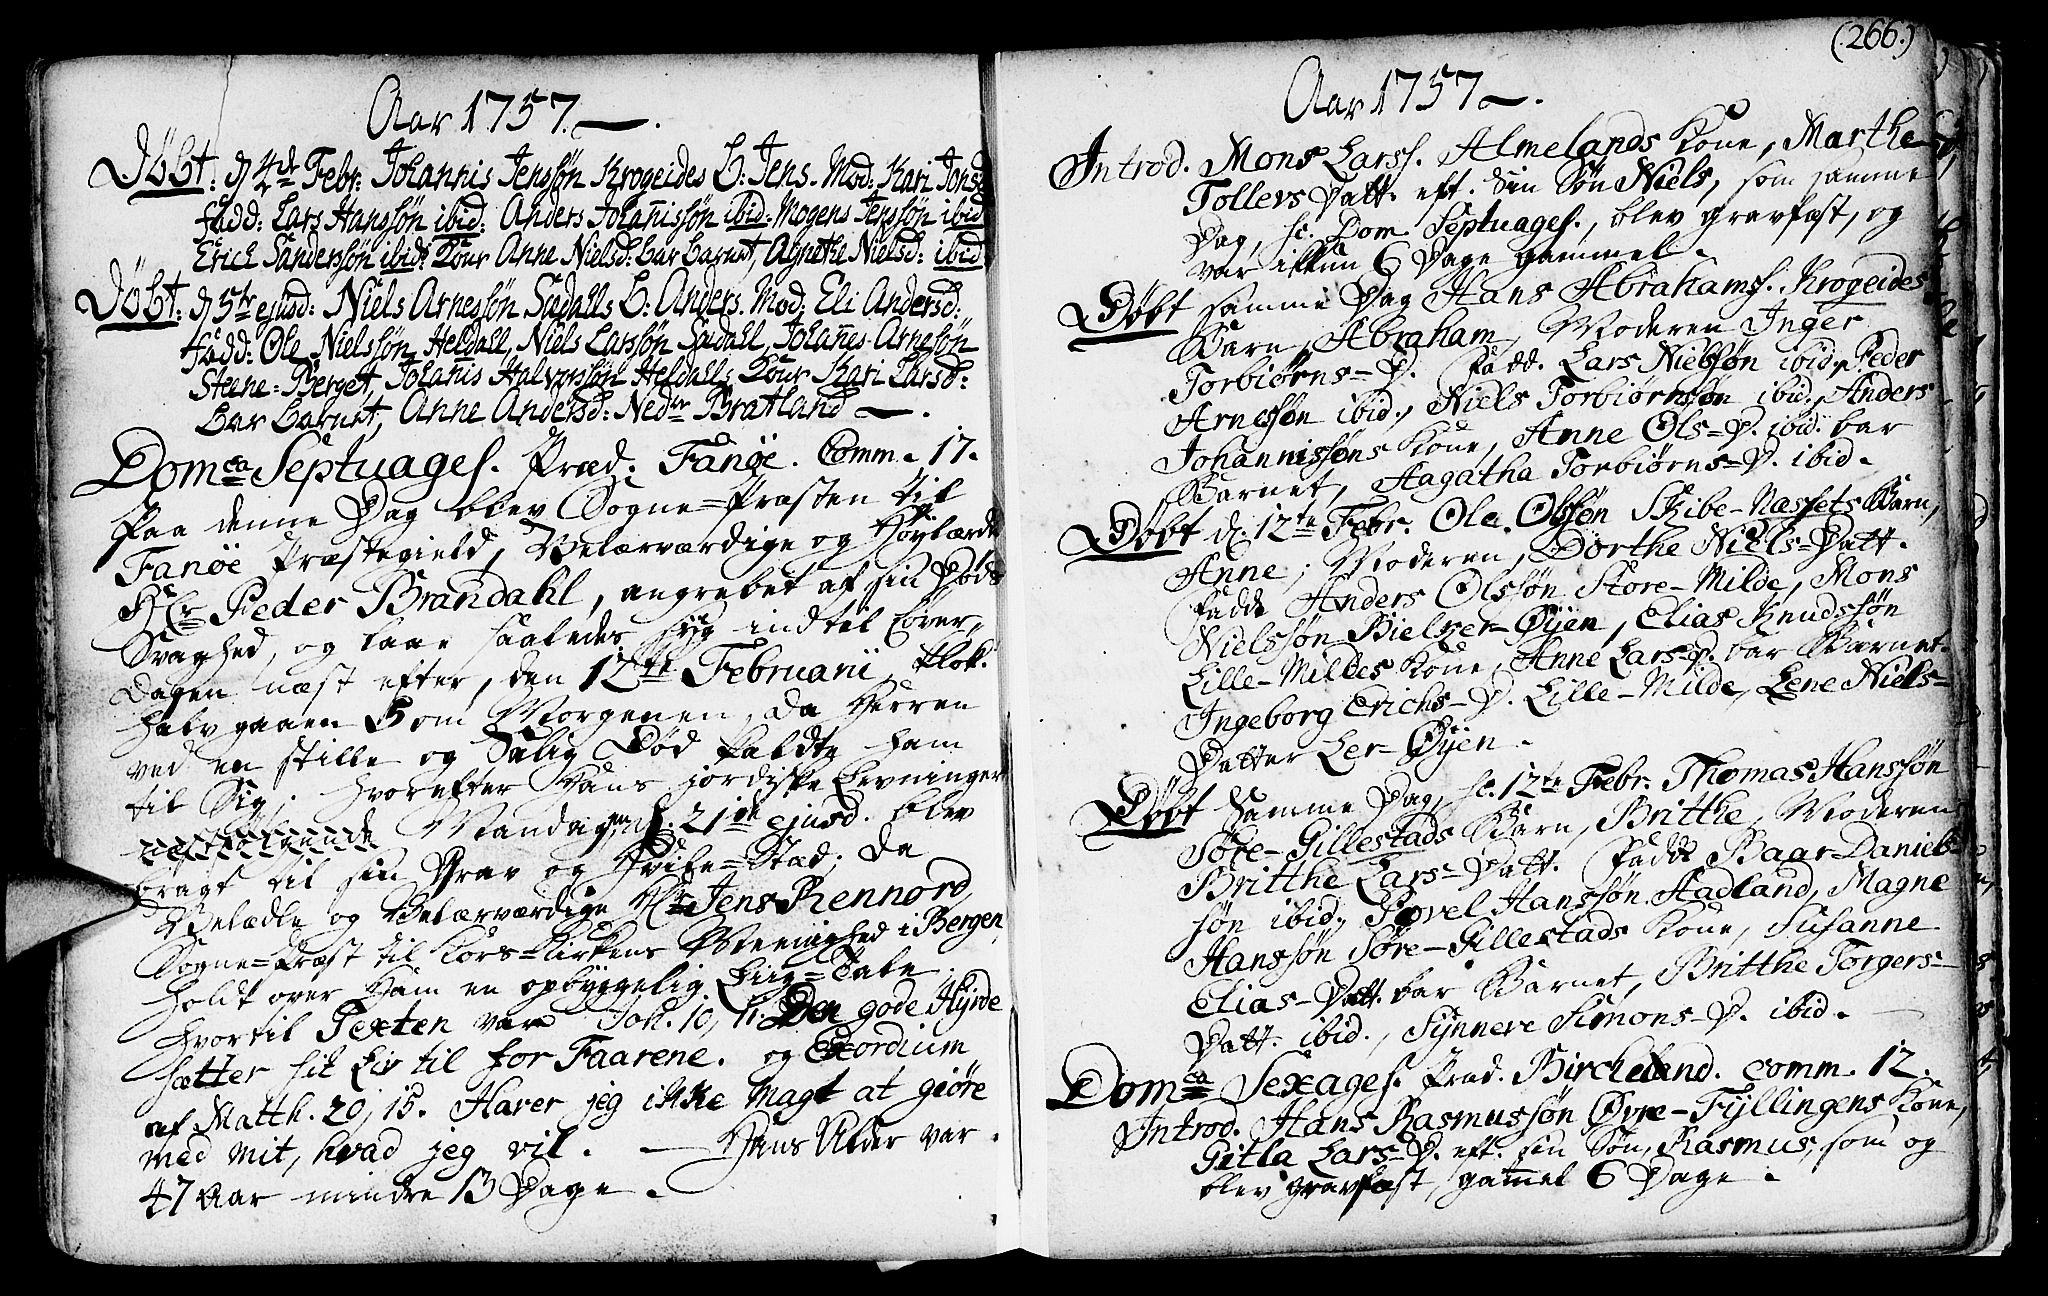 Aar 1757.
Döbt: d 4de Febr: Johannis Jenssön Krogeides B: Jens. Mod: Kari Jonsd
Fadd: Lars Hanssön ibid: Anders Johañissön ibid: Mogens Jenssön ibid
Erich Sanderssön ibid: Konr Anne Nielsd: bar barnet, Agnethe Nielsd: ibid
Döbt: d 5te ejusd: Niels Arnessön Sædalls B: Anders. Mod: Eli Andersd:
Fadd: Ole Nielssön Heldall, Niels Larssön Sædall, Johañes Arnessön
Steene-Berget, Johanis Halvorssön Heldalls Konr Kari Larsd:
bar barnet, Anne Andersd: Nedre Bratland
Domca Septuages. Præd. Fanöe. Comm. 17.
Paa denne Dag blev Sogne=Præsten til
Fanöe Præstegield, Velærværdige og Höylærde
Hr Peder Brandahl, angrebet af sin Döds
Svaghed, og laae saaledes syg indtil Löver-
dagen næst efter, den 12te Februarii, Klok.
halv gaaen 5 om Morgenen, da Herren
ved en stille og Salig Död kaldte ham
til Sig; hvorefter Hans jordiske Levninger
næstfölgende Mandag d. 21de ejusd. blev
bragt til sin Grav og Hvile=Stæd; da
Velædle og Velærværdige Hr Jens Rennord,
Sogne=Præst til Kors=Kirkens Meenighed i Bergen,
holdt over Ham en opbyggelig Liig=Tale
hvortil Texten var Joh. 10, 11. Den gode Hyrde
sætter sit Liv til for Faarene. og Exordium
af Matth. 20, 15. Haver jeg ikke magt at giöre
med mit, hvad jeg vil. — Hans Alder var
47 Aar mindre 13 Dage.
(266.)
Aar 1757.
Introd. Mons Larss. Almelands Kone, Marthe
Tollevs Datt. eft. sin Sön Niels, som samme
Dag, sc. Dom. Septuages., blev gravfæst, og
var ikkun 6 Dage gammel.
Döbt samme Dag Hans Abrahams. Krogeides
Barn, Abraham, Moderen Inger
Torbiörns-D. Fadd. Lars Nielssön ibid., Peder
Arnessön ibid., Niels Torbiörnssön ibid., Anders
Johannissöns Kone, Anne Ols=D. ibid. bar
Barnet, Aagatha Torbiörns=D. ibid.
Döbt d. 12te Febr. Ole Olssön Skibe-Næssets Barn,
Anne; Moderen, Dorthe Niels=Datt.
Fadd. Anders Olssön Store-Milde, Mons
Nielssön Bielker-Öyen, Elias Knudssön
Lille-Mildes Kone, Anne Lars-D. bar Barnet.
Ingeborg Erichs-D. Lille-Milde, Lene Niels-
Datter Ler-Öyen.
Döbt Samme Dag, sc. 12te Febr. Thomas Hanssön
Söre-Gillestads Barn, Britthe, Moderen
Britthe Lars-Datt. Fadd. Baar Daniels-
sön ibid., Povel Hanssön Aadland, Magne
Hanssön Söre-Gillestads Kone, Susanne
Elias-Datt. bar Barnet, Britthe Torgers-
Datt. ibid., Synneve Simons-D. ibid.
Domca Sexages. Præd. Bircheland. comm. 12.
Introd. Hans Rasmussön Övre-Fyllingens Kone,
Gitla Lars-D. eft. sin Sön, Rasmus, som og
blev gravfæst, gam̃el 6 Dage.